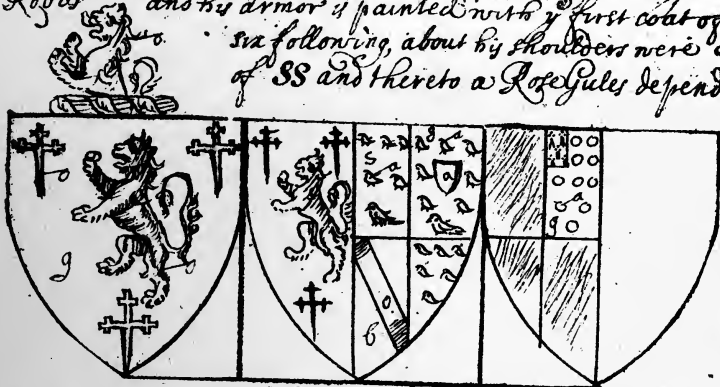 and his armor is painted with yᵉ first coat of
six following, about his shoulders were
of SS and thereto a Rose Gules depend
o
o
g
o
S
a
g
a
a
o
b
a
g